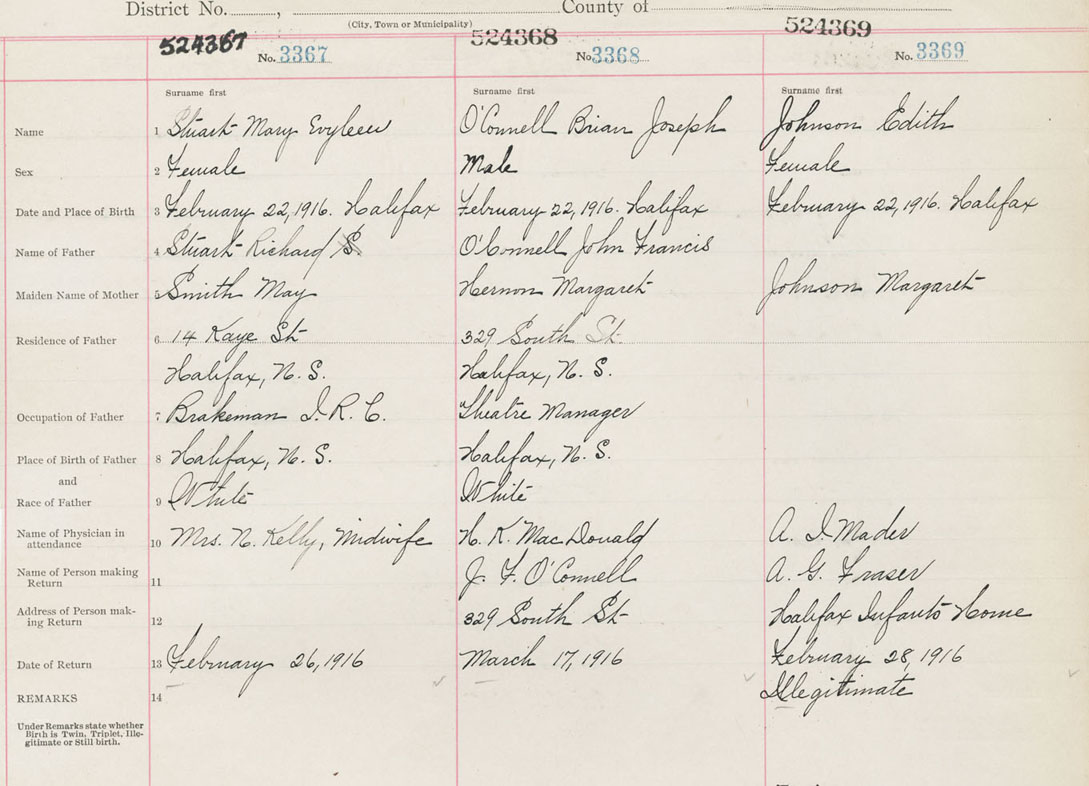 District No. , County of
(City, Town or Municipality)
524367 524368 524369
No. 3367 No 3368 No. 3369
Surname first Surname first Surname first
Name 1 Stuart Mary Evyleen O'Connell Brian Joseph Johnson Edith
Sex 2 Female Male Female
Date and Place of Birth 3 February 22, 1916. Halifax February 22, 1916. Halifax February 22, 1916. Halifax
Name of Father 4 Stuart Richard S O'Connell John Francis
Maiden Name of Mother 5 Smith May Hernon Margaret Johnson Margaret
Residence of Father 6 14 Kaye St 329 South St.
Halifax, N. S. Halifax, N. S.
Occupation of Father 7 Brakeman I. R. C. Theatre Manager
Place of Birth of Father 8 Halifax, N. S. Halifax, N. S.
and
Race of Father 9 White White
Name of Physician in
attendance 10 Mrs. N. Kelly, Midwife H. K. MacDonald A. I. Mader
Name of Person making
Return 11 J. F. O'Connell A. G. Fraser
Address of Person mak-
ing Return 12 329 South St Halifax Infants Home
Date of Return 13 February 26, 1916 March 17, 1916 February 28, 1916
REMARKS 14 Illegitimate
Under Remarks state whether
Birth is Twin, Triplet, Ille-
gitimate or Still birth.